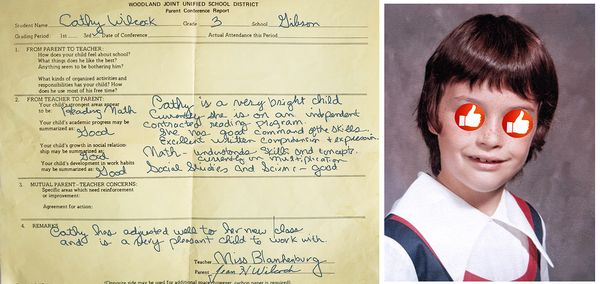 WOODLAND JOINT UNIFIED SCHOOL DISTRICT
Parent Conference Report
Student Name Cathy Wilcock Grade 3 School Gibson
Grading Period: 1st 3rd Date of Conference Actual Attendance this Period
1. FROM PARENT TO TEACHER:
How does your child feel about school?
What things does he like the best?
Anything seem to be bothering him?
What kinds of organized activities and
responsibilities has your child? How
does he use most of his free time?
2. FROM TEACHER TO PARENT:
Your child's strongest areas appear
to be: Reading/Math
Your child's academic progress may be
summarized as: Good
Your child's growth in social relation-
ship may be summarized as: Good
Your child's development in work habits
may be summarized as: Good
Cathy is a very bright child
Currently she is on an independent
contracted reading program.
She has good command of the skills.
Excellent written comprehension + expression
Math - understands skills and concepts.
currently on multiplication
Social Studies and Science - good
3. MUTUAL PARENT-TEACHER CONCERNS:
Specific areas which need reinforcement
or improvement:
Agreement for action:
4. REMARKS
Cathy has adjusted well to her new class
and is a very pleasant child to work with.
Teacher Miss Blankenburg
Parent Jean H Wilcock
(Opposite side may be used for additional space; however, carbon paper is required)